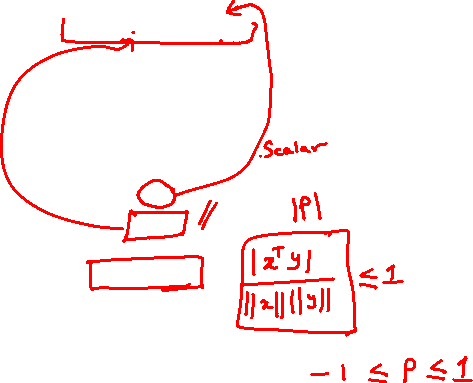 Scalar
|P|
|x^T y|
||x|| ||y||
≤ 1
-1 ≤ P ≤ 1